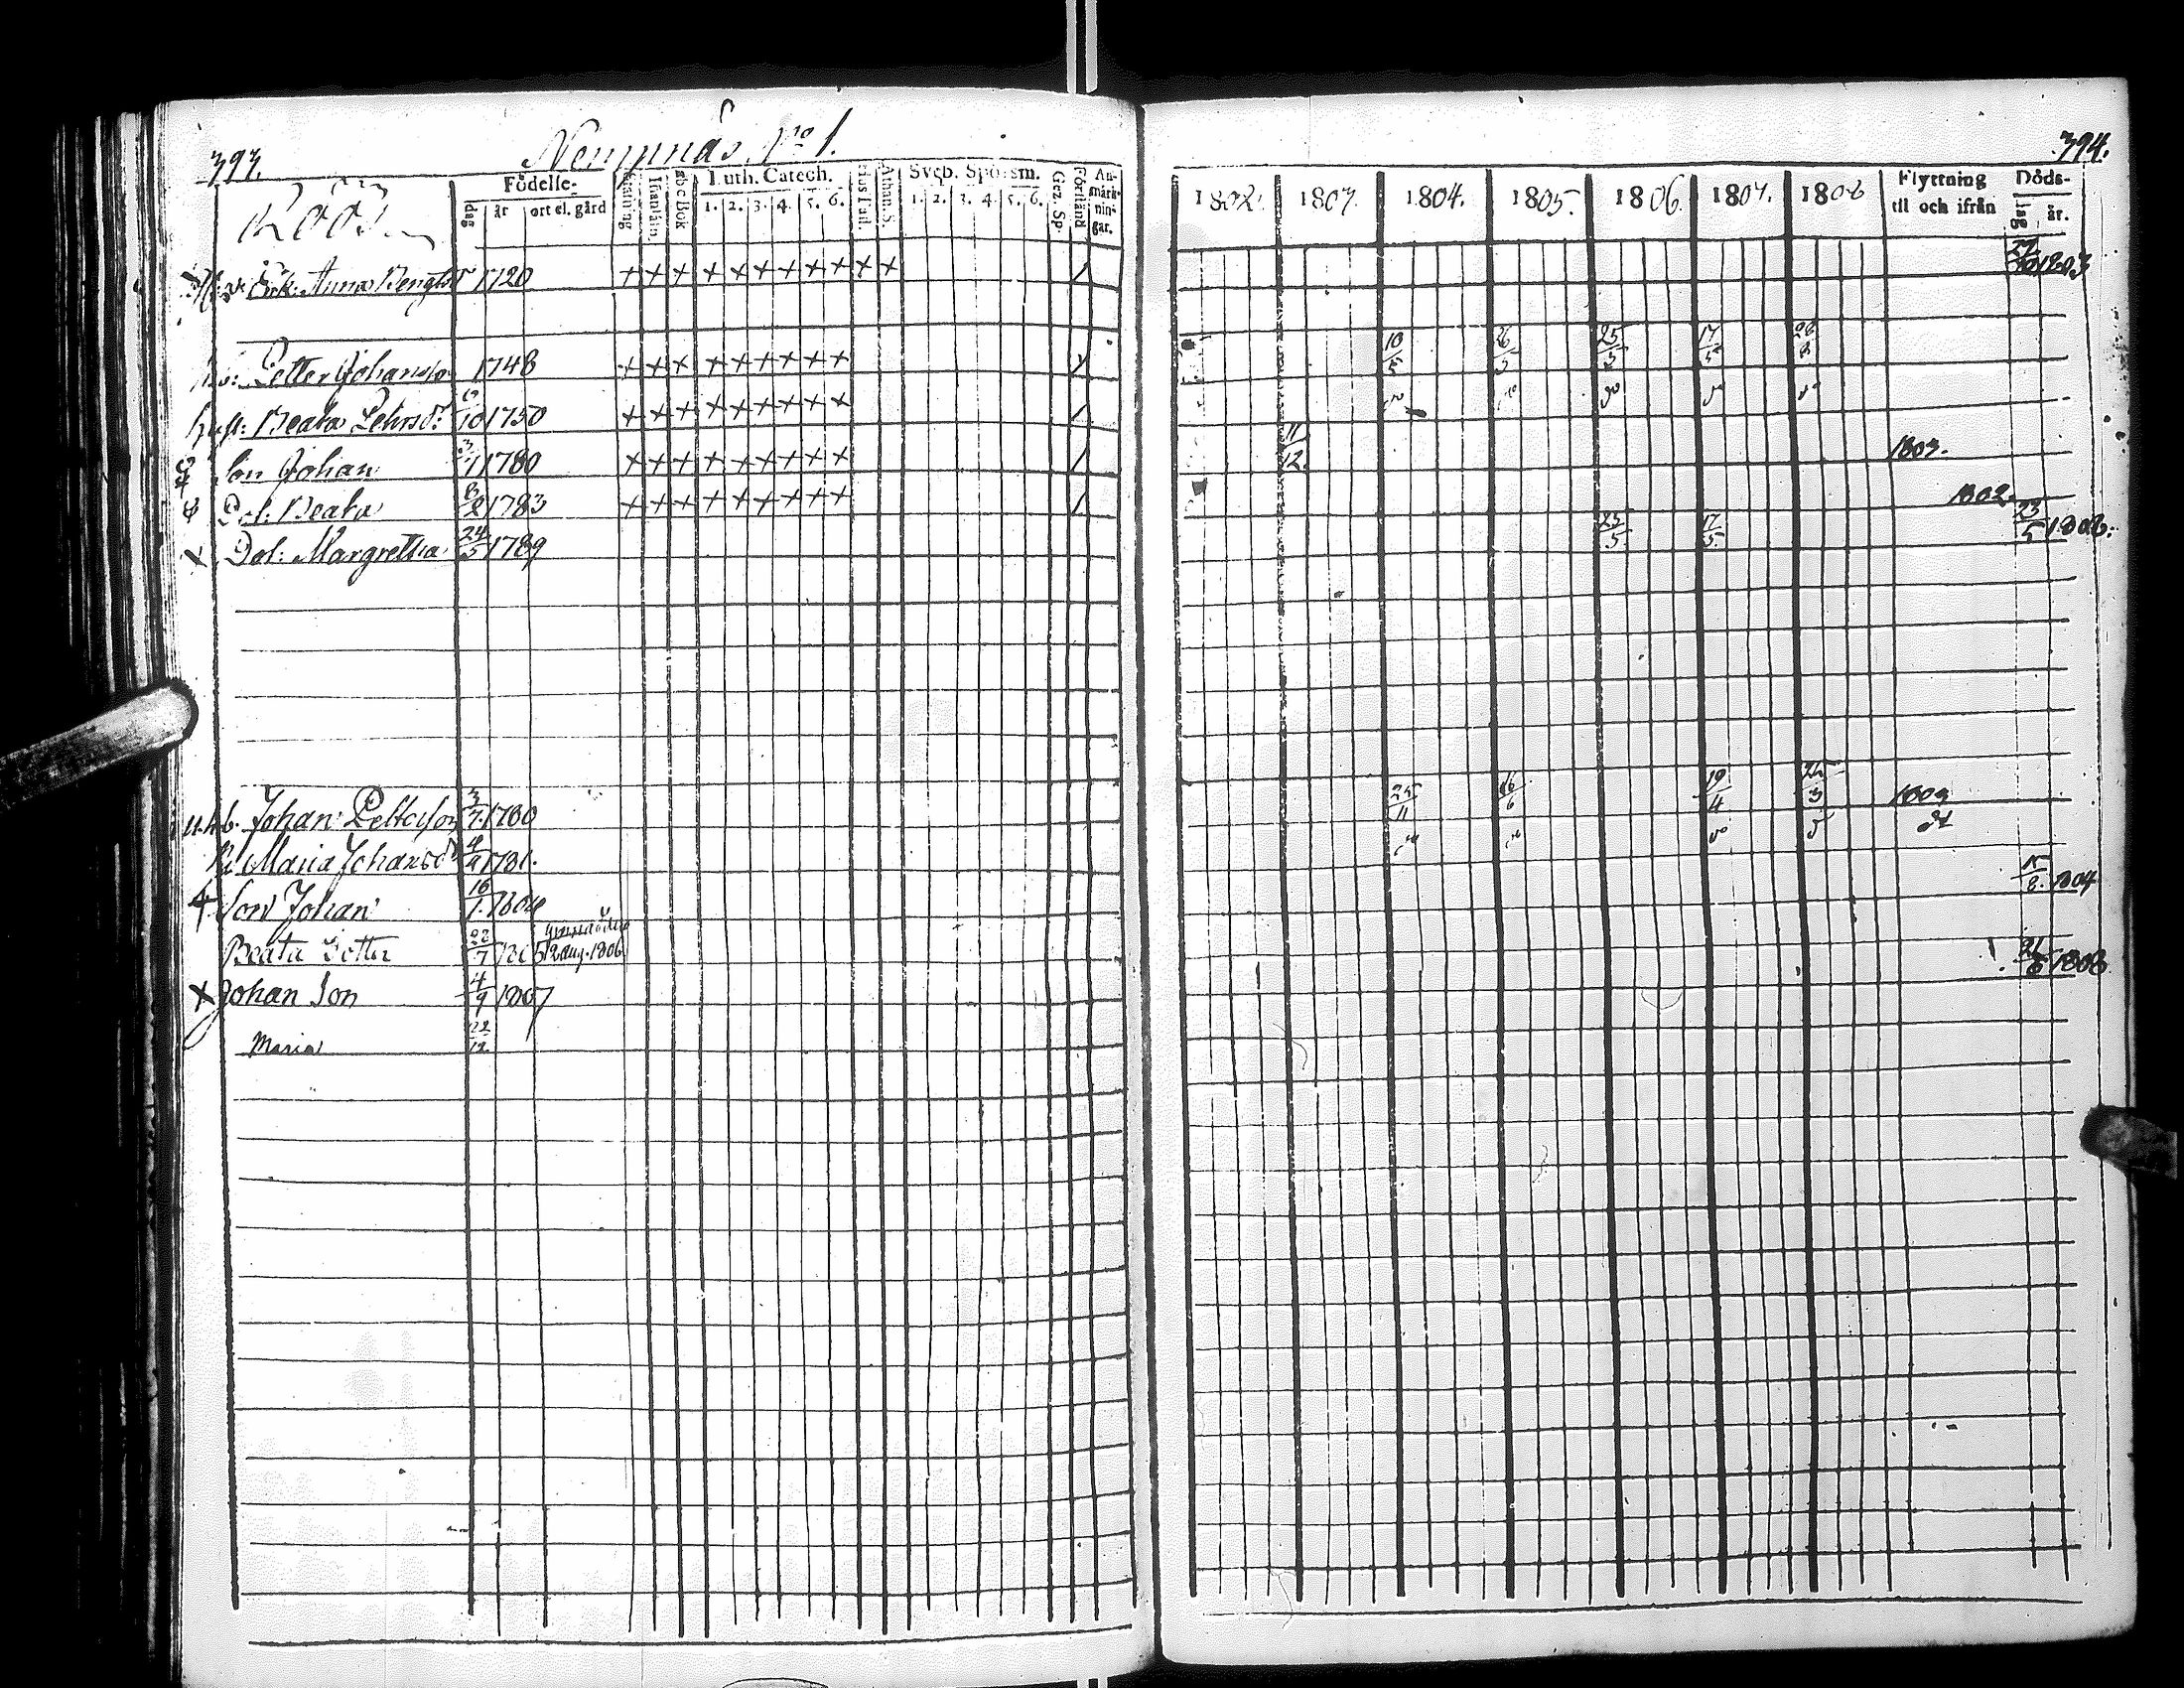 393.
No 1.
Födelse-
dag år ort el. gård
abc Bok
Luth. Catech.
1. 2. 3. 4. 5. 6.
Athan. S.
Sveb. Spörsm.
1. 2. 3. 4. 5. 6.
Gez. Sp.
Förstånd
An-
märk-
nin-
gar.
Enk. Anna Bengtsdr 1720 + + × × × × × × × × × /
Petter Johansson 1748 + × × × × × × × ×
hust: Beata Pehrsdr 10 1750 × × × × × × × × × /
Son Johan 3/7 1780 × × × × × × × × × /
Dot: Beata 8/2 1783 + × × × × × × × × /
Dot: Margretha 24/5 1789
Johan Petterson 3/7. 1780
Maria Johansdr 1781.
Son Johan 16/1. 1804
Beata Dotter 22/7 1805 12 aug. 1806
× Johan Son 4/9 1807
Maria 22/12
394.
1802. 1803. 1804. 1805. 1806. 1807. 1808
Flyttning
til och ifrån
Döds-
dag år.
1803
10/5 26/5 25/5 17/5
11/12. 1803.
1802.
25/5 17/5 23/5 1808.
25/11 16/6 19/4 25/3 1809
15/8. 1804
1808